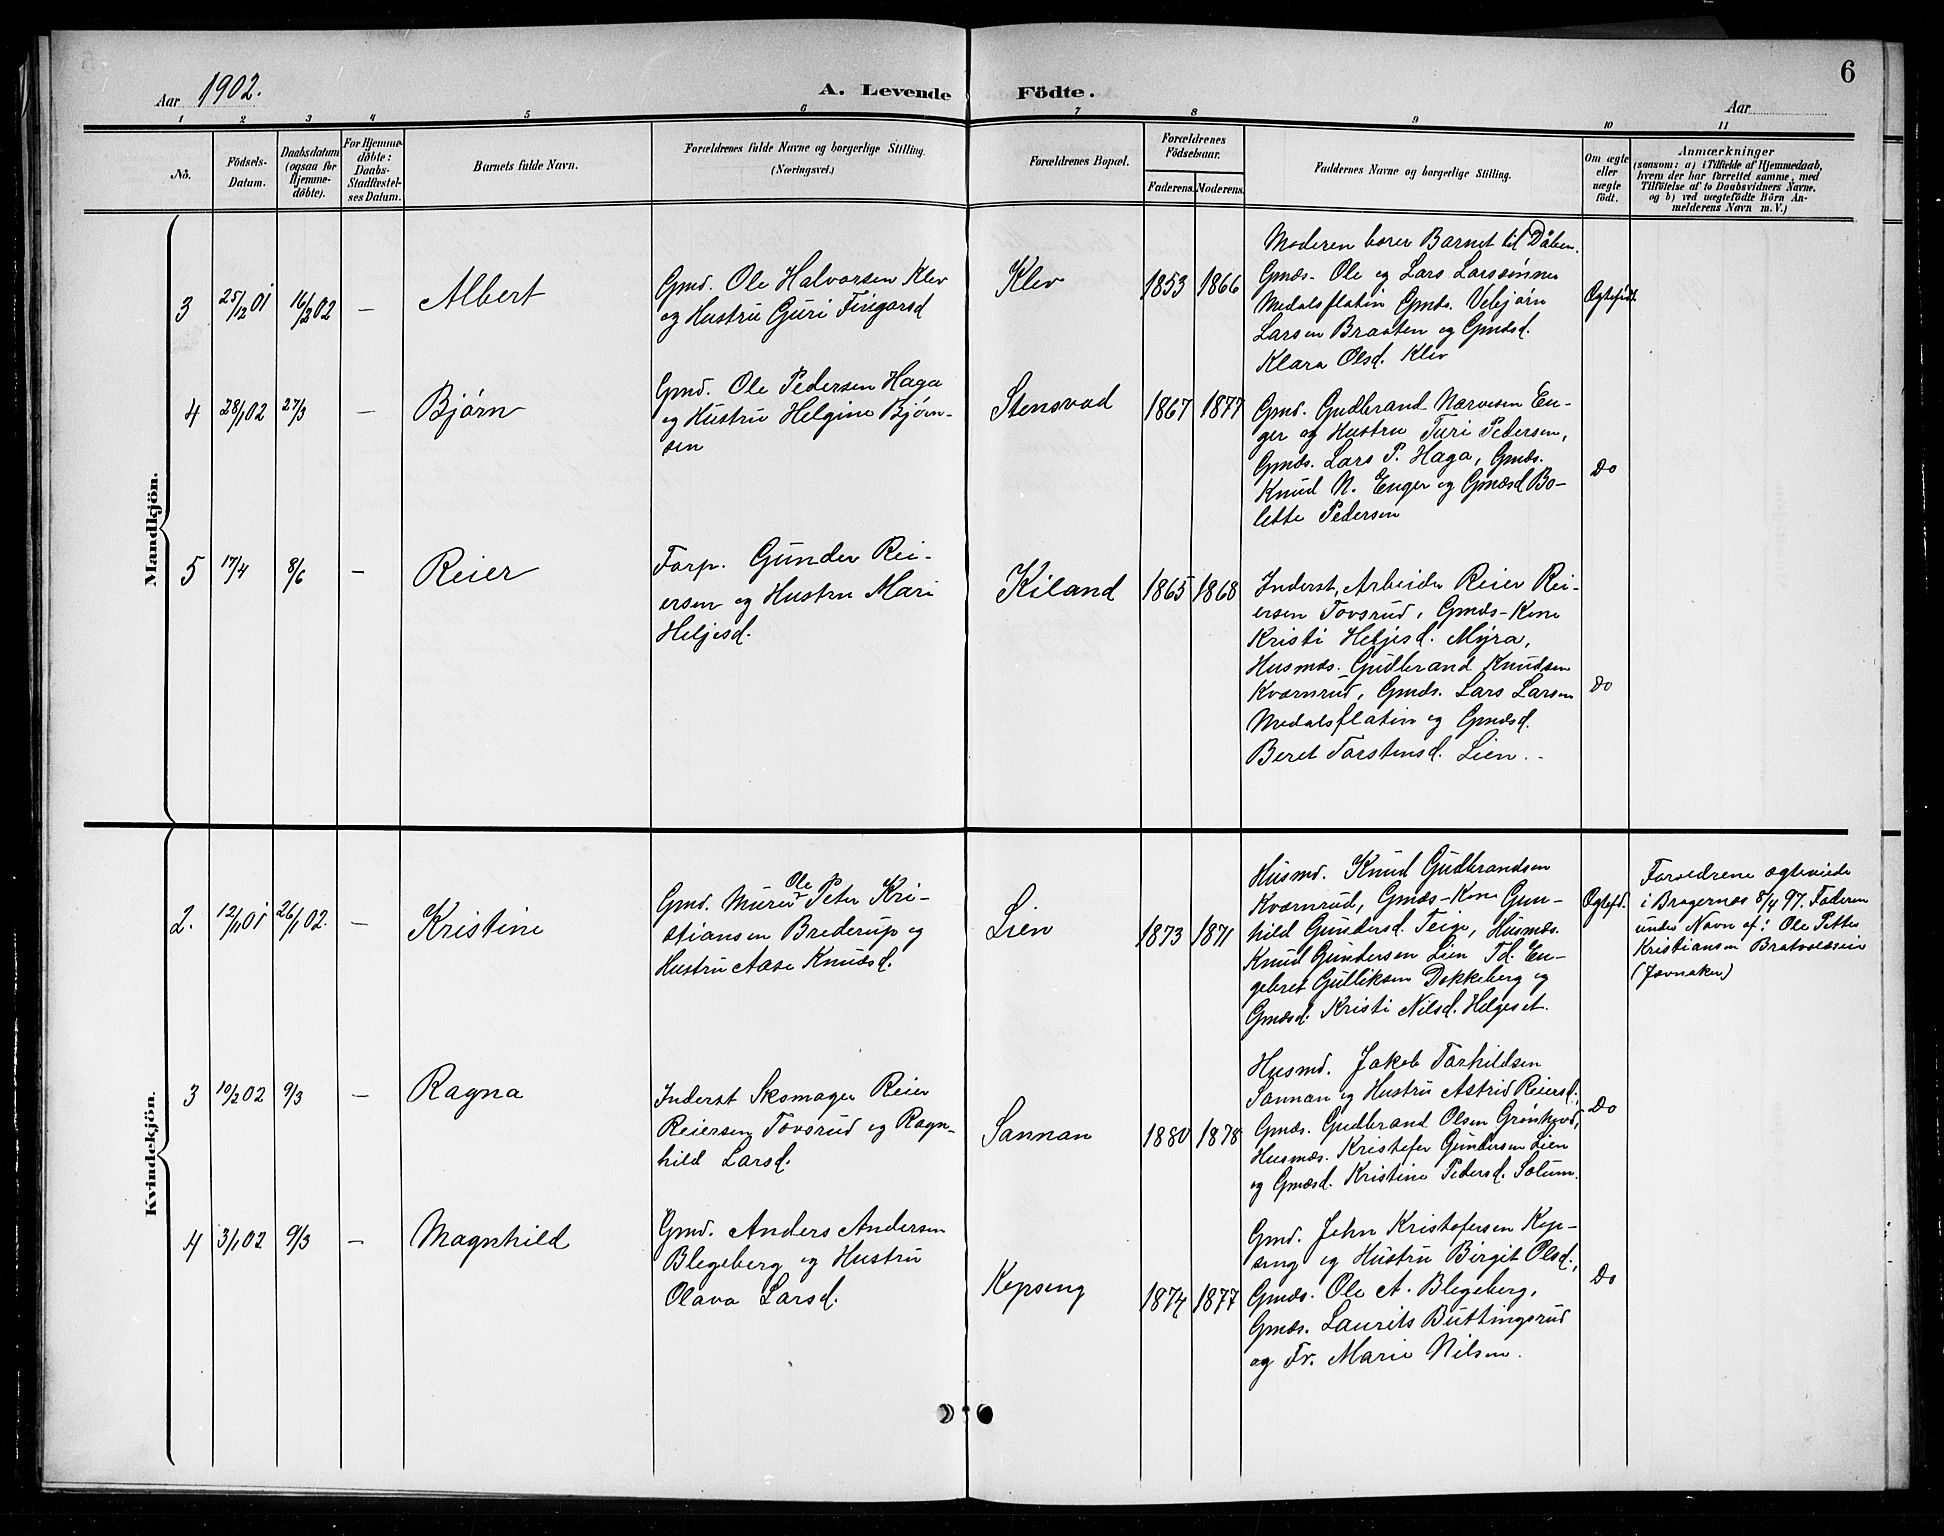 6
Aar 1902.
A. Levende Födte.
Aar
1 2 3 4 5 6 7 8 9 10 11
No.
Födsels-
Datum.
Daabsdatum
(ogsaa for
Hjemme-
döbte).
For Hjemme-
döbte:
Daabs-
Stadfæstel-
ses Datum.
Barnets fulde Navn.
Forældrenes fulde Navne og borgerlige Stilling.
(Næringsvei.)
Forældrenes Bopæl.
Forældrenes
Födselsaar.
Faderens. Moderens.
Faddernes Navne og borgerlige Stilling.
Om ægte
eller
uægte
födt.
Anmærkninger
(saasom: a) i Tilfælde af Hjemmedaab,
hvem der har forrettet samme, med
Tilföielse af to Daabsvidners Navne.
og b) ved uægtefödte Börn An-
melderens Navn m. V.)
Mandkjön.
3
25/12 01
16/3 02
—
Albert
Gmd. Ole Halvorsen Klev
og Hustru Guri Fingarsd
Klev
1853 1866
Moderen bærer Barnet til Dåben.
Gmds. Ole og Lars Larssønner
Medalsflatin Gmds. Vebjørn
Larsen Braaten og Gmdsd.
Klara Olsd. Klev
Ægtefdt.
4
28/1 02
27/3
—
Bjørn
Gmd. Ole Pedersen Haga
og Hustru Helgine Bjørn-
sen
Stensvad
1867 1877
Gmd. Gudbrand Narvesen En-
ger og Hustru Turi Pedersen,
Gmds. Lars P. Haga, Gmds.
Knud N. Enger og Gmdsd Bo-
lette Pedersen
Do
5
17/4
8/6
—
Reier
Forp. Gunder Rei-
ersen og Hustru Mari
Heljesd.
Kiland
1865 1868
Inderst, Arbeider Reier Rei-
ersen Tovsrud, Gmds-Kone
Kristi Heljesd. Myra,
Husmds. Gudbrand Knudsen
Kværnrud, Gmds. Lars Larsen
Medalsflatin og Gmdsd.
Beret Torstensd. Lien.
Do
Kvindekjön.
2.
12/11 01
26/1 02.
—
Kristine
Gmd. Murer Ole Peter Kri-
stiansen Brederup og
Hustru Aase Knudsd.
Lien
1873 1871
Husmd. Knud Gudbrandsen
Kværnrud, Gmds-Kone Gun-
hild Gundersd. Teige, Husmds.
Knud Gundersen Lien Td. En-
gebret Gulliksen Dokkeberg og
Gmdsd. Kristi Nilsd. Helgeset.
Ægtefd.
Forældrene ægteviede
i Bragernes 8/4 97. Faderen
under Navn af: Ole Petter
Kristiansen
(Jevnaker)
3
10/2 02
9/3
—
Ragna
Inderst Skomager Reier
Reiersen Tovsrud og Ragn-
hild Larsd.
Sannan
1880 1878
Husmd. Jakob Torkildsen
Sannan og Hustru Astrid Reiersd.,
Gmds. Gudbrand Olsen Grønhovd,
Husmds. Kristofer Gundersen Lien
og Gmdsd. Kristine Pedersd. Solum.
Do
4
3/1 02
9/3
—
Magnhild
Gmd. Anders Andersen
Blegeberg og Hustru
Olava Larsd.
Kopseng
1874 1877
Gmd. John Kristofersen Kop-
seng og Hustru Birgit Olsd.,
Gmds. Ole A. Blegeberg,
Gmds. Laurits Buttingsrud
og Fr. Marie Nilsen.
Do